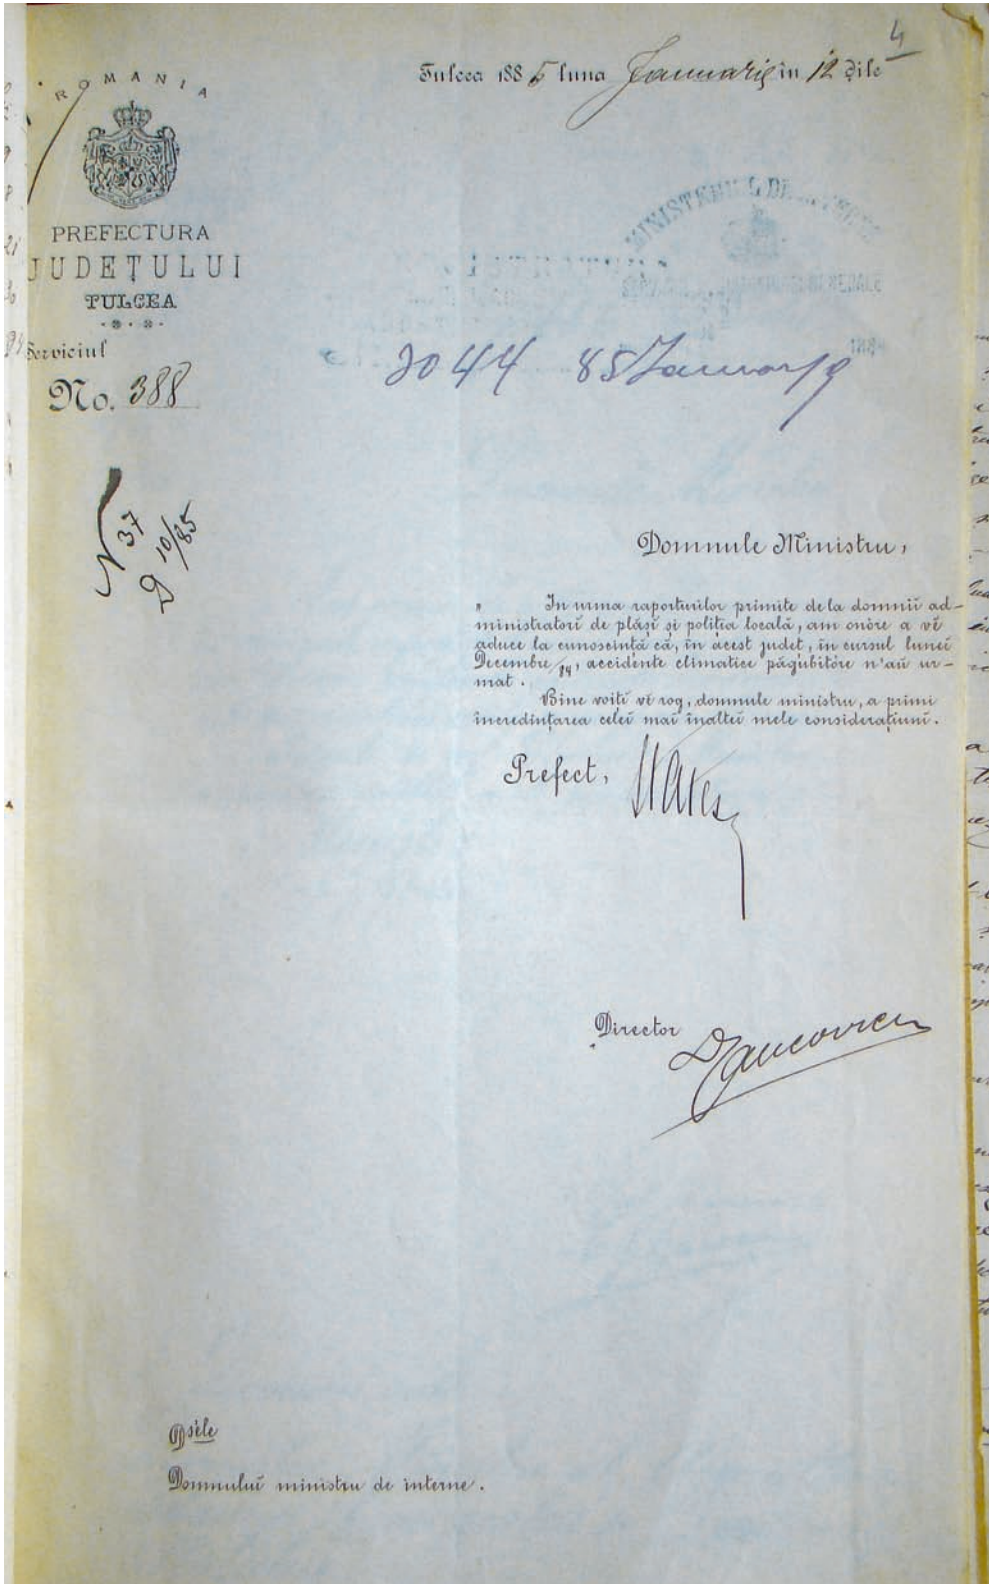 4
Tulcea 1885 luna Januarie in 12 Ḑile
ROMANIA
PREFECTURA
JUDEȚULUI
TULCEA
Serviciul
No. 388
MINISTERUL DE INTERNE
3044 85 Januar 19
N 37
D 10/85
Domnule Ministru,
In urma raporturilor primite de la domnii ad-
ministratorĭ de plășĭ și poliția locală, am onóre a vĕ
aduce la cunoscință că, în acest județ, în cursul luneĭ
Decembre /84, accidente climatice păgubitóre n'aŭ ur-
mat.
Bine voițĭ vĕ rog, domnule ministru, a primi
încredințarea celeĭ maĭ înalteĭ mele considerațiunĭ.
Prefect,
Director
Dséle
Domnuluĭ ministru de interne.